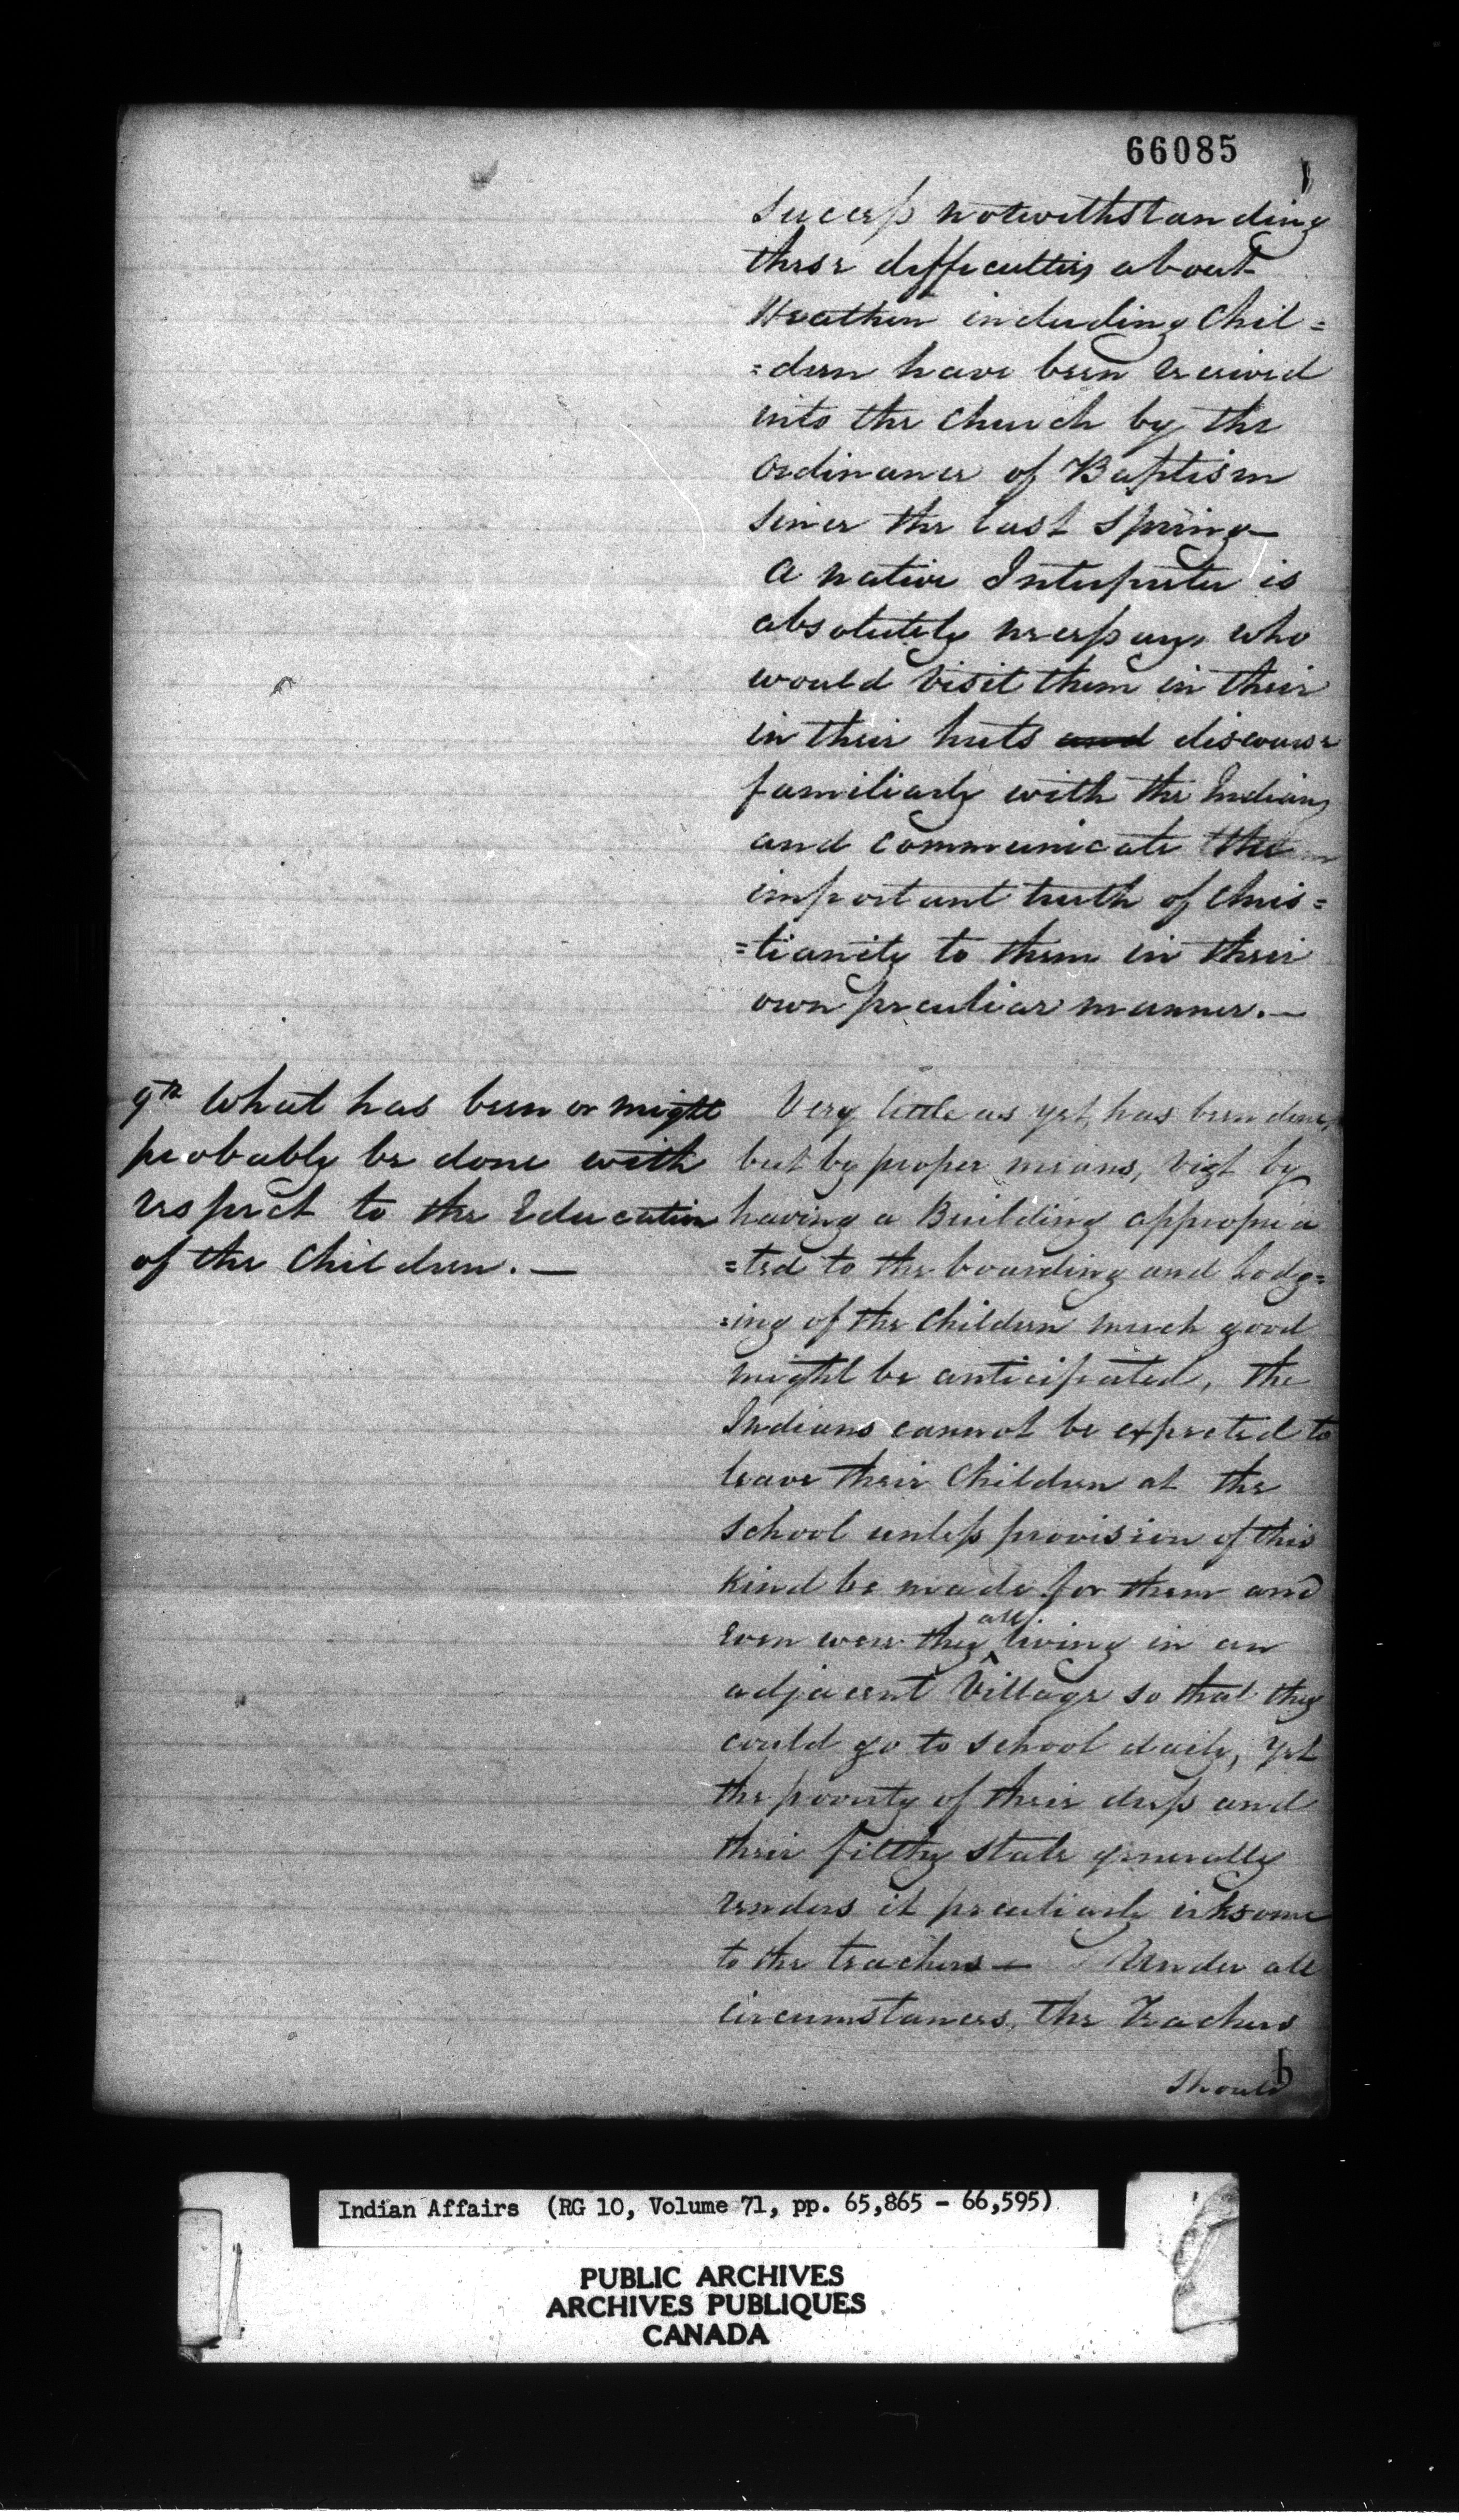 66085
success notwithstanding
these difficulties about
Heathen including Chil=
=dren have been received
into the church by the
Ordinance of Baptism
since the last Spring—
A native Interpreter is
absolutely necessary, who
would visit them in their
in their huts and discourse
familiarly with the Indians
and communicate the
important truth of Chris=
=tianity to them in their
own peculiar manner.—
9th What has been or might
probably be done with
respect to the Education
of the Children.—
Very little as yet, has been done,
but by proper means, vizt by
having a Building appropria
=ted to the boarding and lodg=
=ing of the Children much good
might be anticipated, the
Indians cannot be expected to
leave their Children at the
School unless provision of this
kind be made for them and
even were they all living in an
adjacent Village so that they
could go to school daily, yet
the poverty of their dress and
their filthy state generally
renders it peculiarly irksome
to the teachers— Under all
circumstances, the Teachers
should
Indian Affairs (RG 10, Volume 71, pp. 65,865 - 66,595)
PUBLIC ARCHIVES
ARCHIVES PUBLIQUES
CANADA